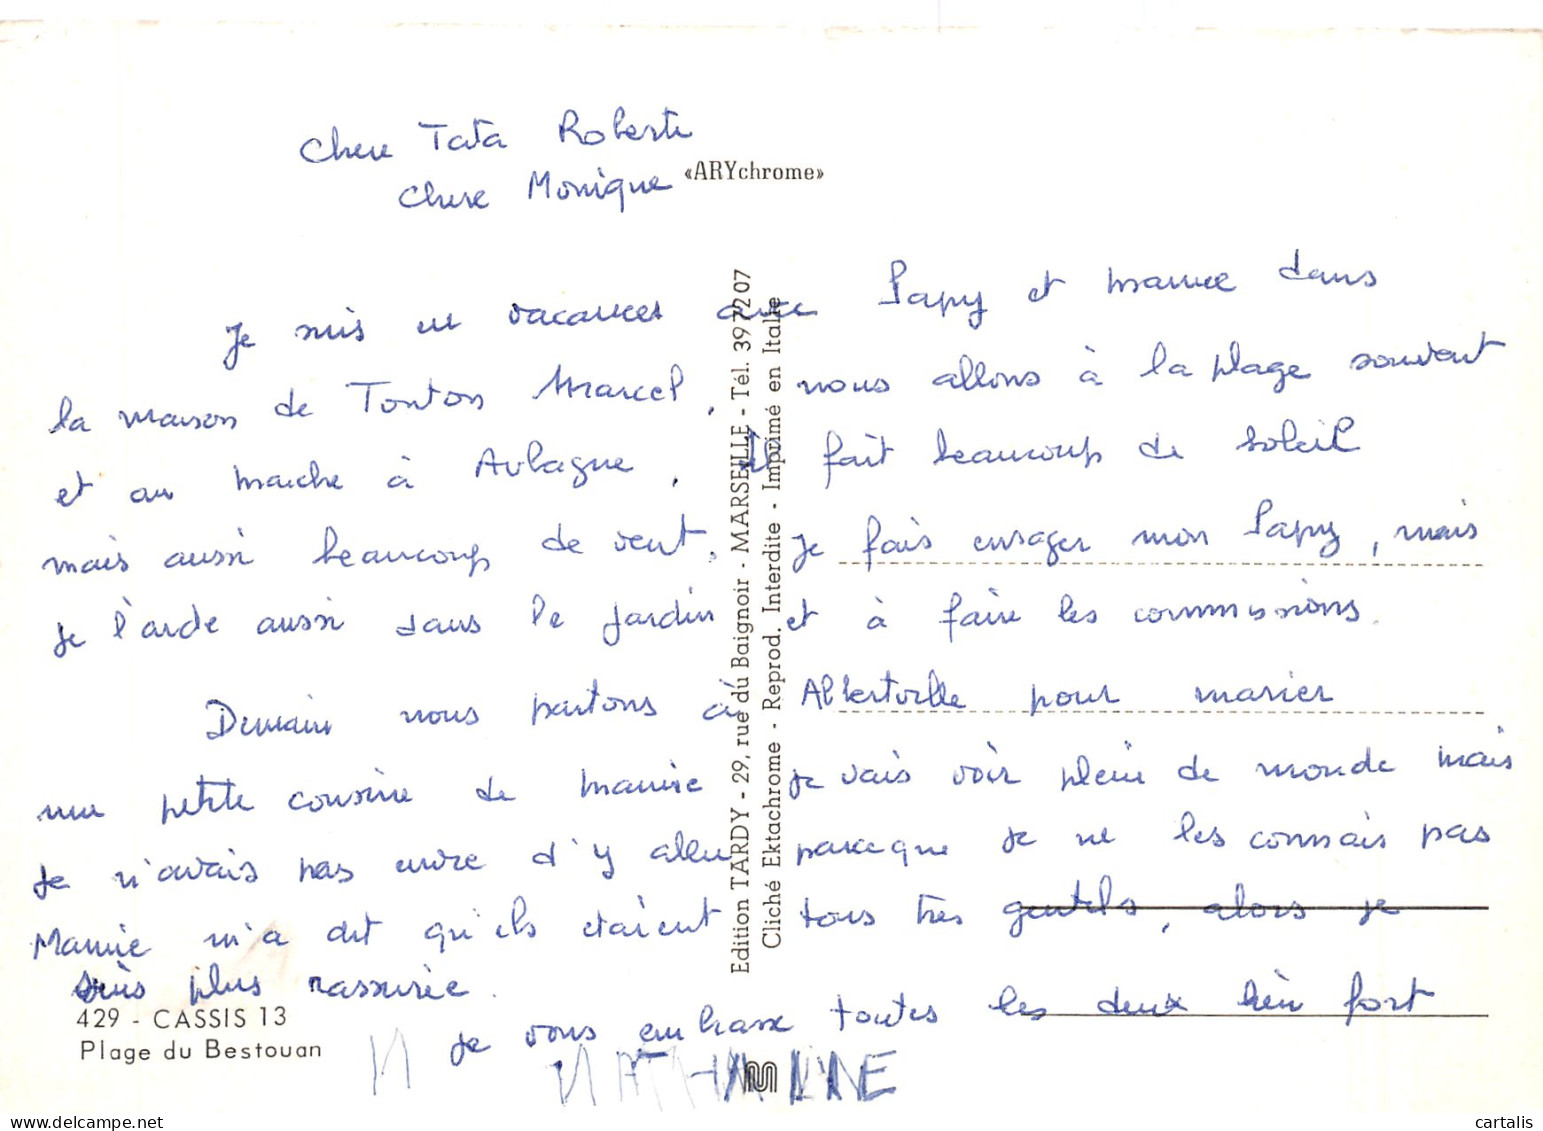 Chere Tata Roberte
Chere Monique
«ARYchrome»
Je suis en vacances avec Papy et mamie dans
la maison de Tonton Marcel, nous allons à la plage souvent
et au marche à Aubagne, il fait beaucoup de soleil
mais aussi beaucoup de vent, je fais enrager mon Papy, mais
je l'aide aussi dans le jardin et à faire les commissions.
Demain nous partons à Albertville pour marier
une petite cousine de mamie je vais voir plein de monde mais
je n'avais pas envie d'y aller parceque je ne les connais pas
Mamie m'a dit qu'ils etaient tous très gentils, alors je
suis plus rassurée.
Je vous embrasse toutes les deux bien fort
N NATHALINE
Edition TARDY - 29, rue du Baignoir - MARSEILLE - Tél. 397207
Cliché Ektachrome - Reprod. Interdite - Imprimé en Italie
429 - CASSIS 13
Plage du Bestouan
cartalis